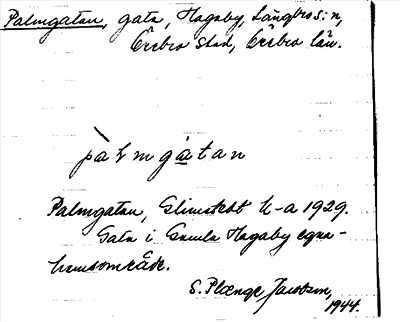 Palmgatan, gata, Hagaby, Längbro s:n,
Örebro stad, Örebro län.
pàlmgatan
Palmgatan, Glimstedt h-a 1929.
Gata i Gamla Hagaby egna-
hemsområde.
S. Plœnge Jacobson,
1944.